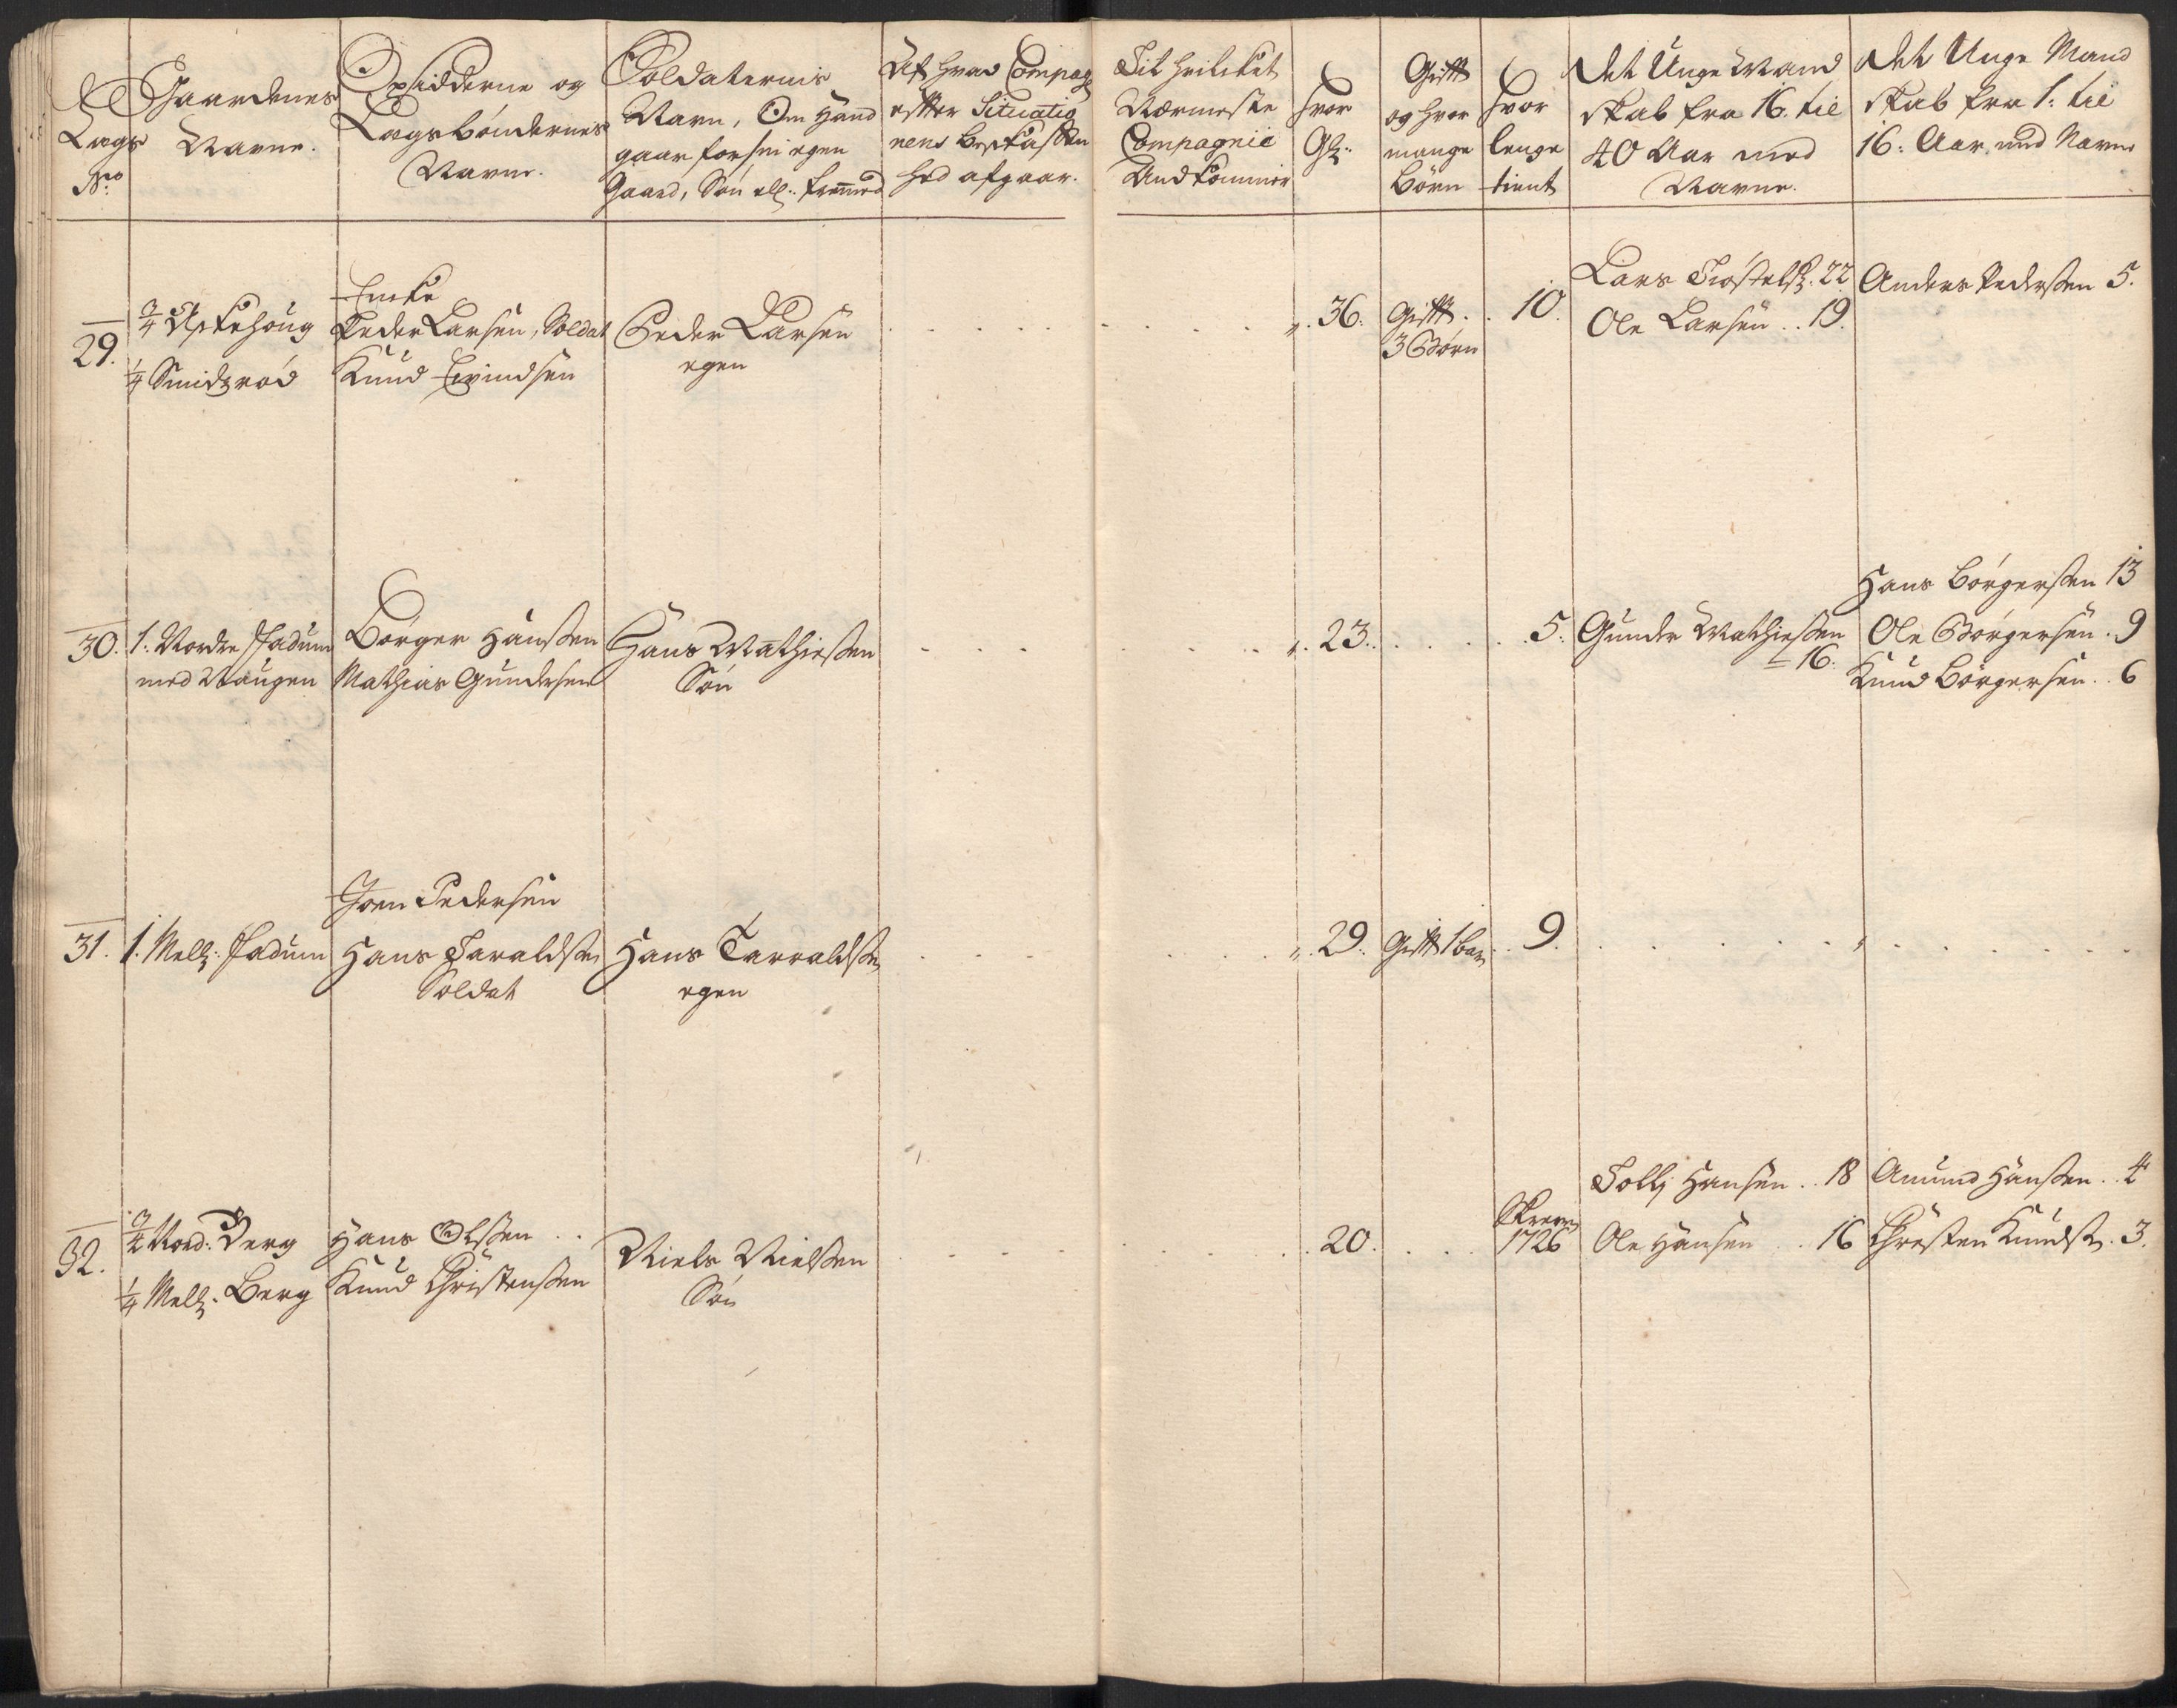 Lags
No
Gaardenes
Navne.
Opsidderne og
Lagsbøndernes
Navne.
Soldaternis
Navn, Om Hand
gaar for sin egen
Gaard, Søn ell: fremmed
Af hvad Compag
efter Situatio
nens beskaffen
hed afgaar.
Til hvilket
Nærmeste
Compagnie
Andkommer
Hvor
Gl:
Gifft
og hvor
mange
Børn
Hvor
lenge
tient
Det Unge Mand
skab fra 16. til
40 Aar med
Navne.
Det Unge Mand
skab fra 1. til
16. Aar med Navne
29.
3/4 Askehoug
1/4 Smidsrød
Encke
Peder Larsen, Soldat
Knud Evindsen
Peder Larsen
egen
36.
Gifft
3 Børn
10.
Lars 22
Ole Larsen 19.
Anders Pedersen 5.
30.
1. Nordre Fadum
med
Børger Hansen
Mathias Gundersen
Hans Mathiesen
Søn
23.
5.
Gunder Mathiesen
16.
Hans Børgersen 13
Ole Børgersen 9
Knud Børgersen 6
31.
1. Mell: Fadum
Joen Pedersen
Hans Taraldsen
Soldat
Hans Tarraldsen
egen
29.
Gifft 1 barn
9.
32.
3/4 Nord: Berg
1/4 Mell: Berg
Hans Olssen
Knud Christensen
Niels Nielsen
Søn
20.
1726
Hansen 18
Ole Hansen 16
Amund Hansen 4
Christen Knudsen 3.